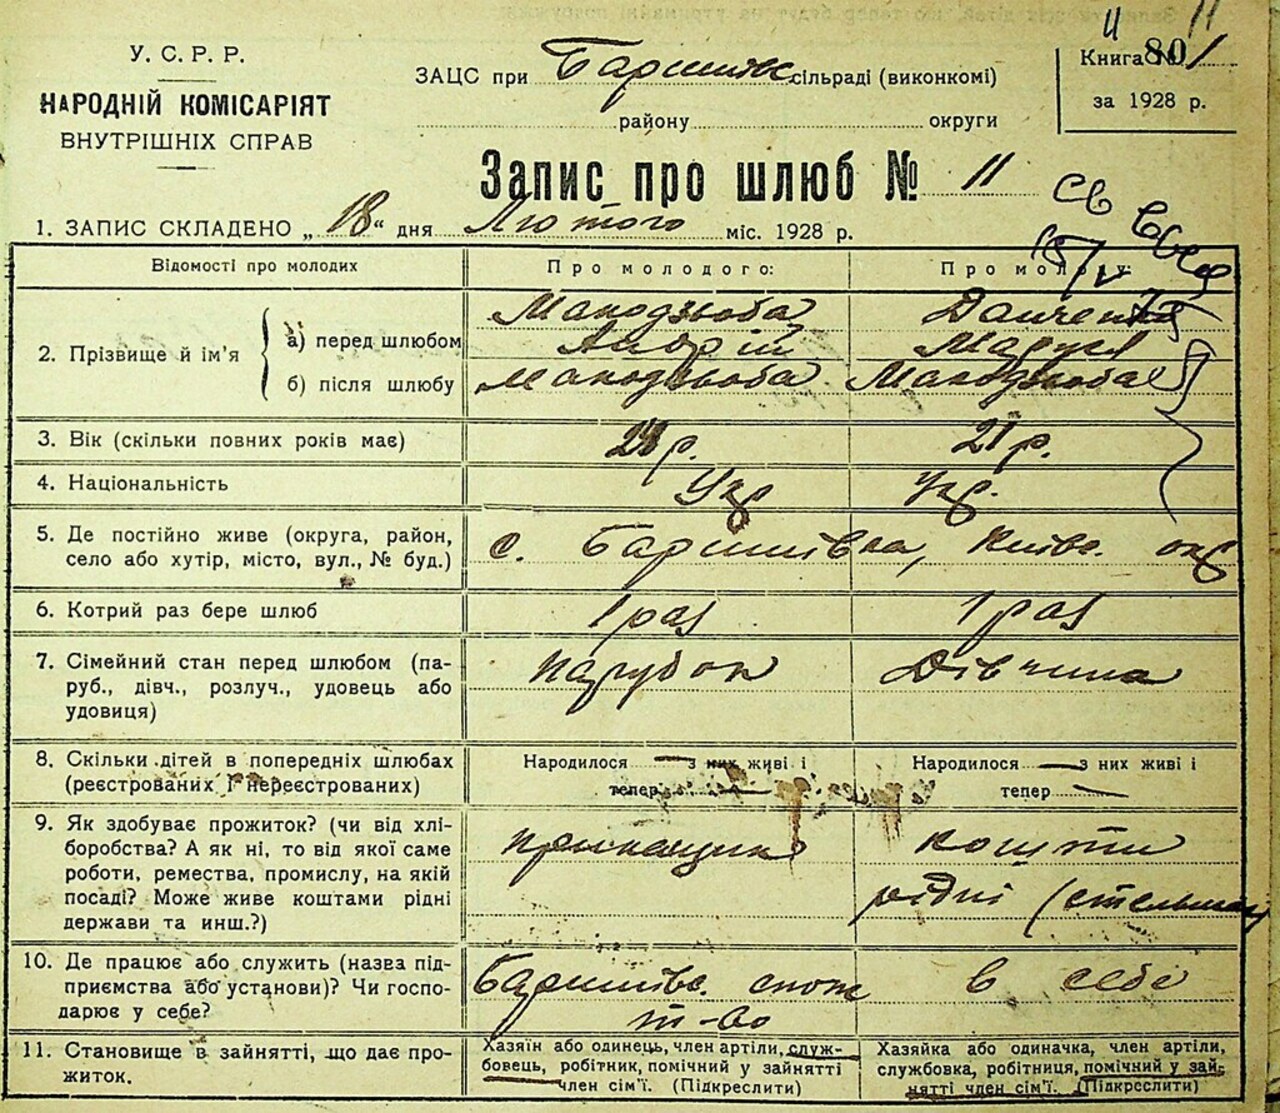 11
У. С. Р. Р.
НАРОДНІЙ КОМІСАРІЯТ
ВНУТРІШНІХ СПРАВ
ЗАЦС при Баришівс. сільраді (виконкомі)
району округи
Книга № 801
за 1928 р.
Запис про шлюб № 11
1. ЗАПИС СКЛАДЕНО „18“ дня Лютого міс. 1928 р.
Відомості про молодих
Про молодого:
Про молоду:
2. Прізвище й ім'я
а) перед шлюбом
Макодзьоба
Андрій
Данченко
Маруся
б) після шлюбу
Макодзьоба
Макодзьоба
3. Вік (скільки повних років має)
р.
21 р.
4. Національність
Укр
Укр.
5. Де постійно живе (округа, район,
село або хутір, місто, вул., № буд.)
с. Баришівка, Київс. окр
6. Котрий раз бере шлюб
1 раз
1 раз
7. Сімейний стан перед шлюбом (па-
руб., дівч., розлуч., удовець або
удовиця)
Парубок
Дівчина
8. Скільки дітей в попередніх шлюбах
(реєстрованих і нереєстрованих)
Народилося — з них живі і
тепер —
Народилося — з них живі і
тепер —
9. Як здобуває прожиток? (чи від хлі-
боробства? А як ні, то від якої саме
роботи, ремества, промислу, на якій
посаді? Може живе коштами рідні
держави та инш.?)
прыкащик
кошти
рідні (стельмах
10. Де працює або служить (назва під-
приємства або установи)? Чи госпо-
дарює у себе?
Баришівс. спож
т-во
в себе
11. Становище в зайнятті, що дає про-
житок.
Хазяїн або одинець, член артіли, служ-
бовець, робітник, помічний у зайнятті
член сім'ї. (Підкреслити)
Хазяйка або одиначка, член артіли,
службовка, робітниця, помічний у зай-
нятті член сім'ї. (Підкреслити)